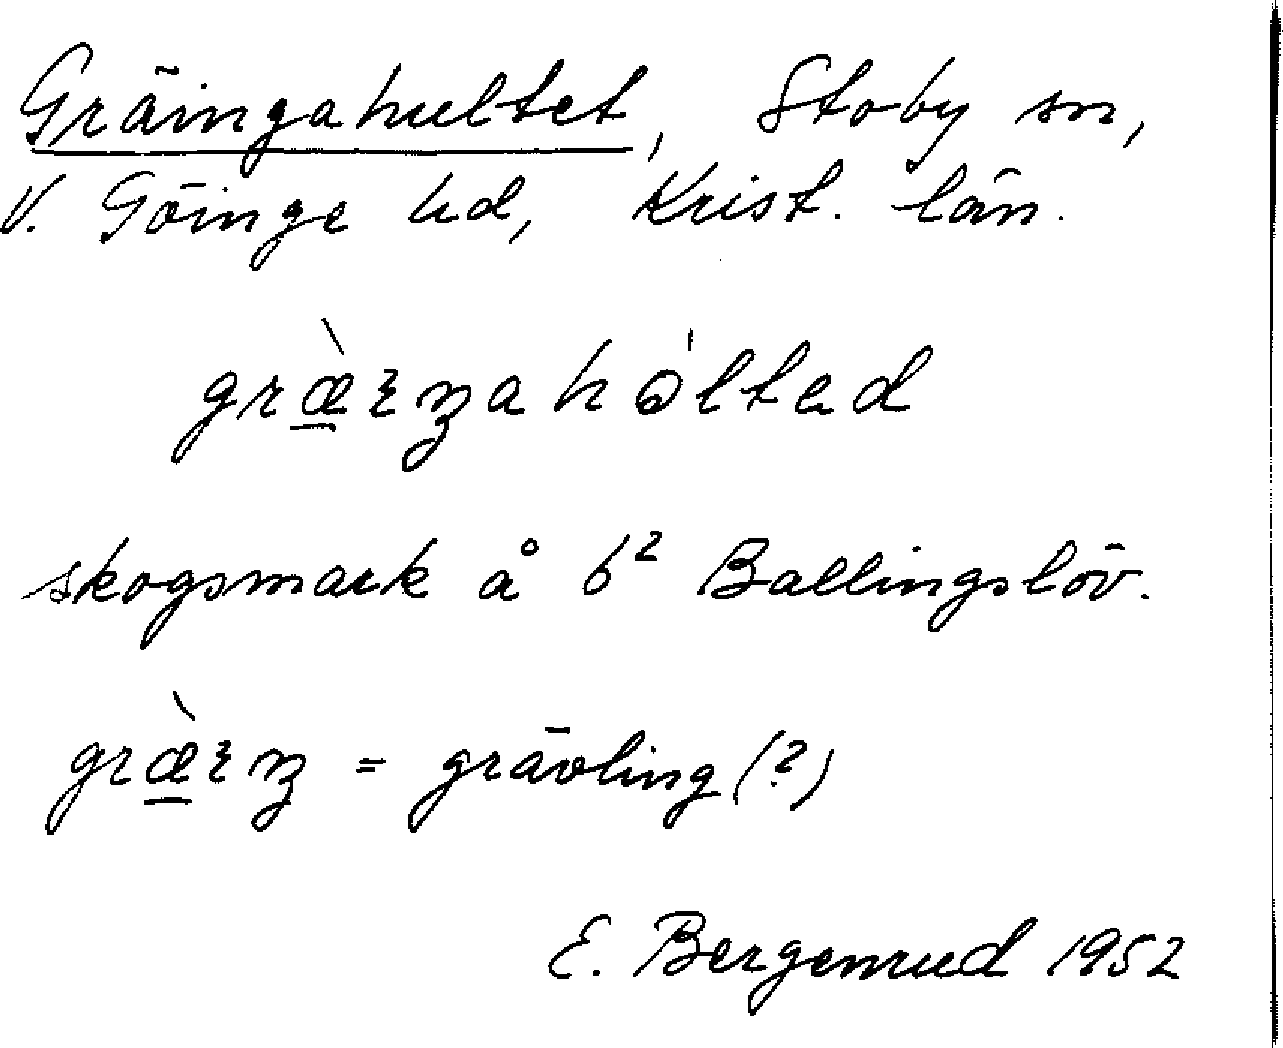 Gräingahultet, Stoby sn,
V. Göinge hd, Krist. län.
skogsmark å 6² Ballingslöv.
= grävling (?)
E. Bergenrud 1952